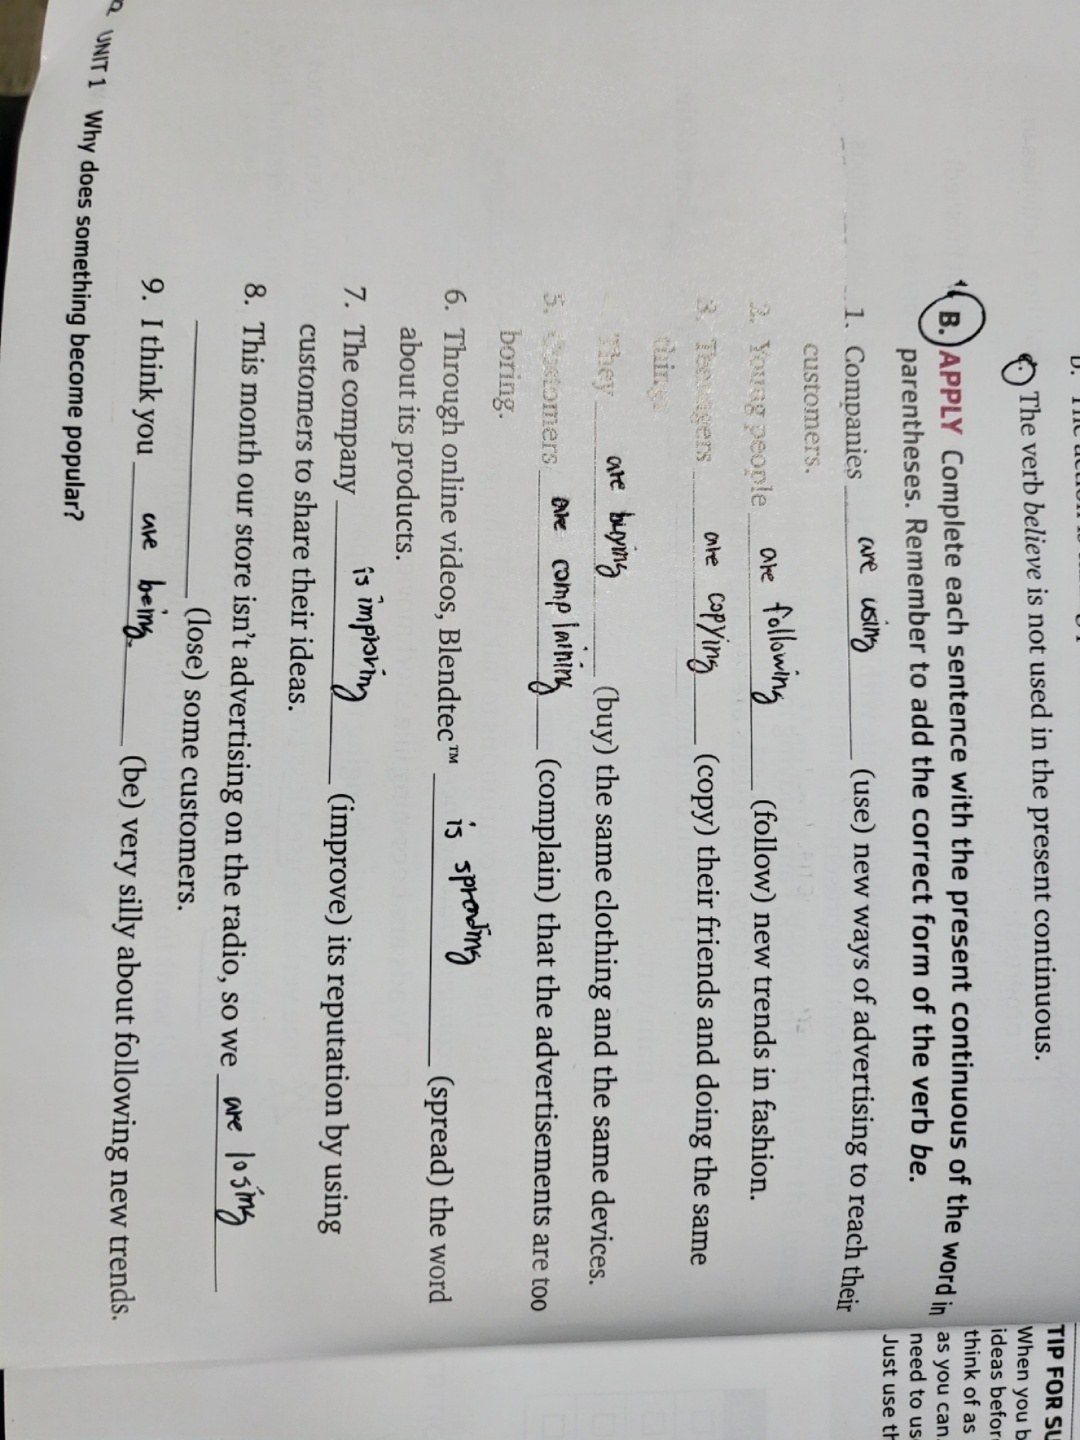 The verb believe is not used in the present continuous.
B. APPLY Complete each sentence with the present continuous of the word in
parentheses. Remember to add the correct form of the verb be.
1. Companies are using (use) new ways of advertising to reach their
customers.
2. Young people are following (follow) new trends in fashion.
3. Teenagers are copying (copy) their friends and doing the same
things.
They are buying (buy) the same clothing and the same devices.
5. Customers are complaining (complain) that the advertisements are too
boring.
6. Through online videos, Blendtec™ is spreading (spread) the word
about its products.
7. The company is improving (improve) its reputation by using
customers to share their ideas.
8. This month our store isn't advertising on the radio, so we are losing
(lose) some customers.
9. I think you are being (be) very silly about following new trends.
UNIT 1 Why does something become popular?
TIP FOR
When you
ideas
think of as
as you can.
need to
Just use